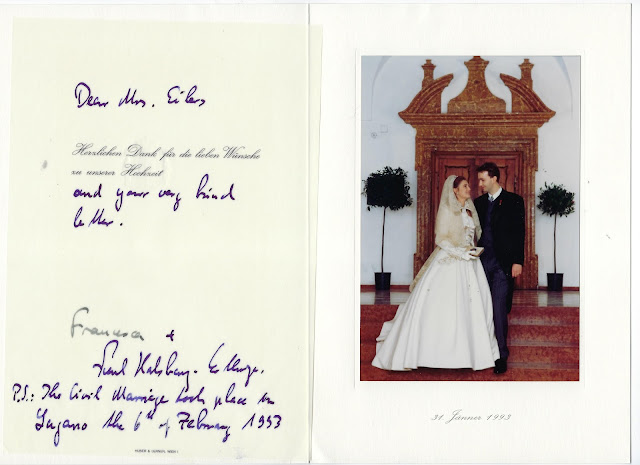 Dear Mrs. Eilers
Herzlichen Dank für die lieben Wünsche
zu unserer Hochzeit
and your very kind
letter.
Francesca +
Habsburg.
P.S.: The Civil Marriage took place in
Lugano the 6th of February 1993
HUBER & LERNER, WIEN I
31. Jänner 1993